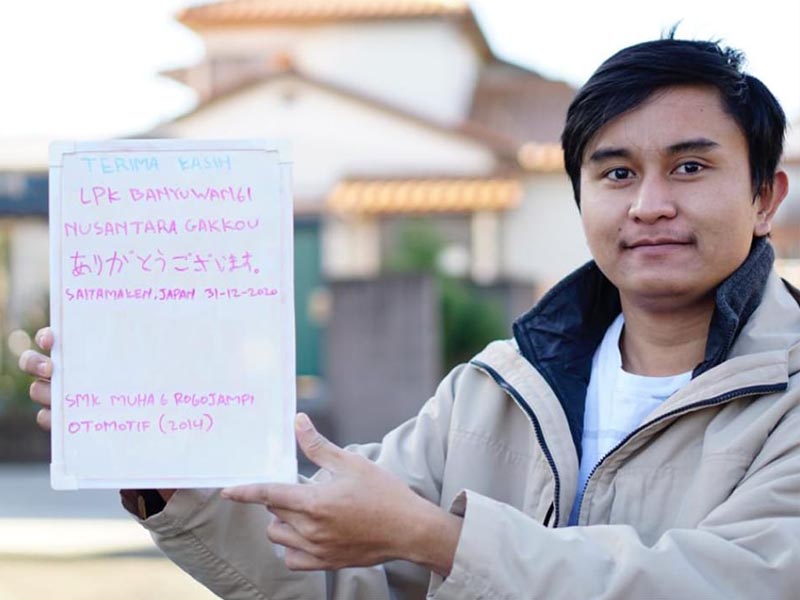 TERIMA KASIH
LPK BANYUWANGI
NUSANTARA GAKKOU
ありがとうございます。
SAITAMAKEN, JAPAN 31-12-2020
SMK MUHA 6 ROGOJAMPI
OTOMOTIF (2014)